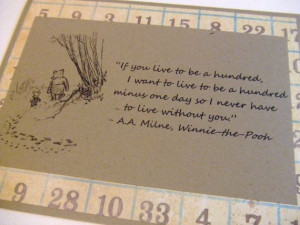 8 15 22 17
"If you live to be a hundred,
I want to live to be a hundred
minus one day so I never have
to live without you."
- A.A. Milne, Winnie-the-Pooh
9 28 10 33 4